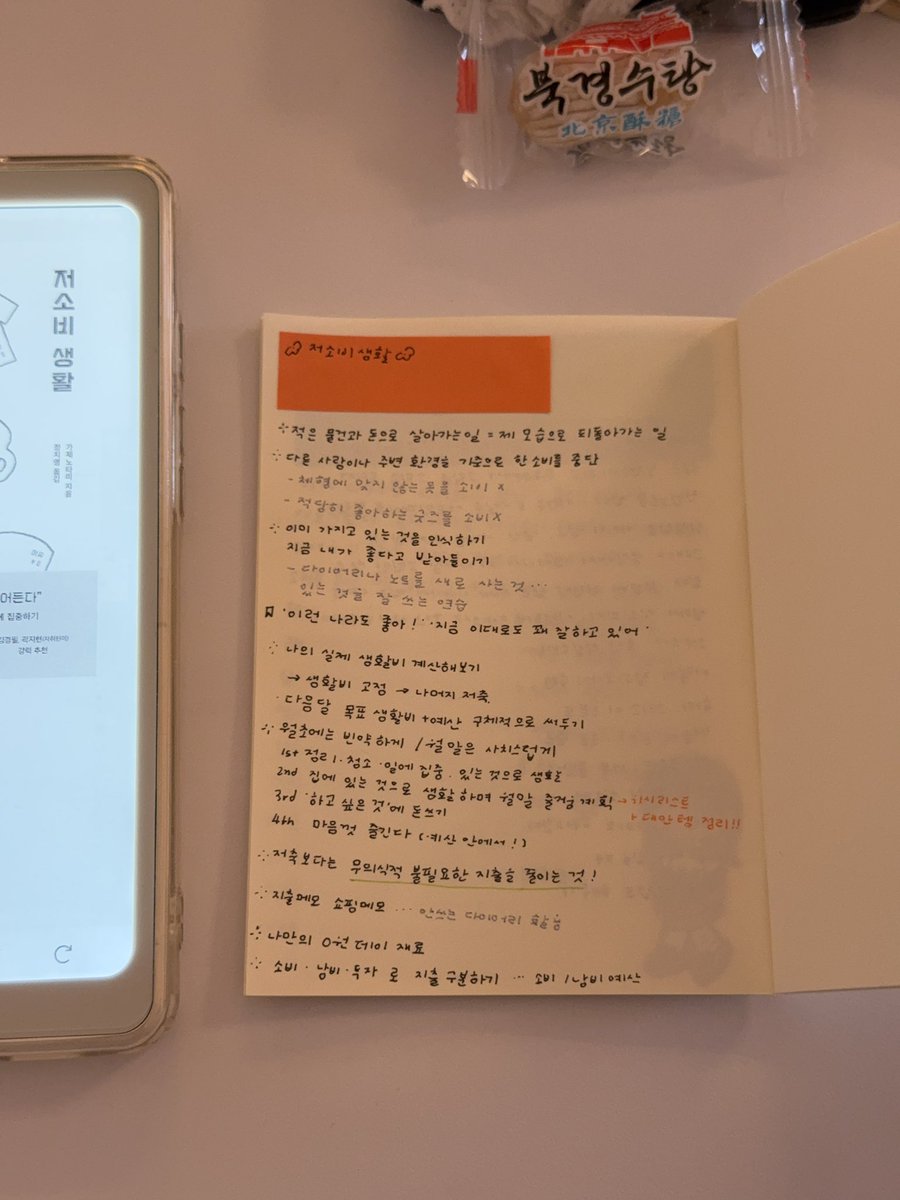 북경수탕
北京酥糖
저소비 생활
가제노타미 지음
정지영 옮김
어든다”
에 집중하기
김경필, 곽지현(자취린이)
강력 추천
저소비 생활
적은 물건과 돈으로 살아가는 일 = 제 모습으로 되돌아가는 일
다른 사람이나 주변 환경을 기준으로 한 소비를 중단
- 체형에 맞지 않는 옷을 소비 x
- 적당히 좋아하는 굿즈를 소비 X
이미 가지고 있는 것을 인식하기
지금 내가 좋다고 받아들이기
- 다이어리나 노트를 새로 사는 것 ...
있는 것을 잘 쓰는 연습
이런 나라도 좋아! 지금 이대로도 꽤 잘하고 있어
나의 실제 생활비 계산해보기
→ 생활비 고정 → 나머지 저축
다음달 목표 생활비 + 예산 구체적으로 써두기
월초에는 빈약하게 / 월말은 사치스럽게
1st 정리·청소·일에 집중·있는 것으로 생활
2nd 집에 있는 것으로 생활하며 월말 즐거울 계획 → 위시리스트
3rd '하고 싶은 것'에 돈쓰기 + 대안템 정리!!
4th 마음껏 즐긴다 (예산 안에서!)
저축보다는 무의식적 불필요한 지출을 줄이는 것!
지출메모 쇼핑메모 ... 안쓰는 다이어리 활용
나만의 0원 데이 재료
소비·낭비·투자 로 지출 구분하기 ... 소비 / 낭비 예산